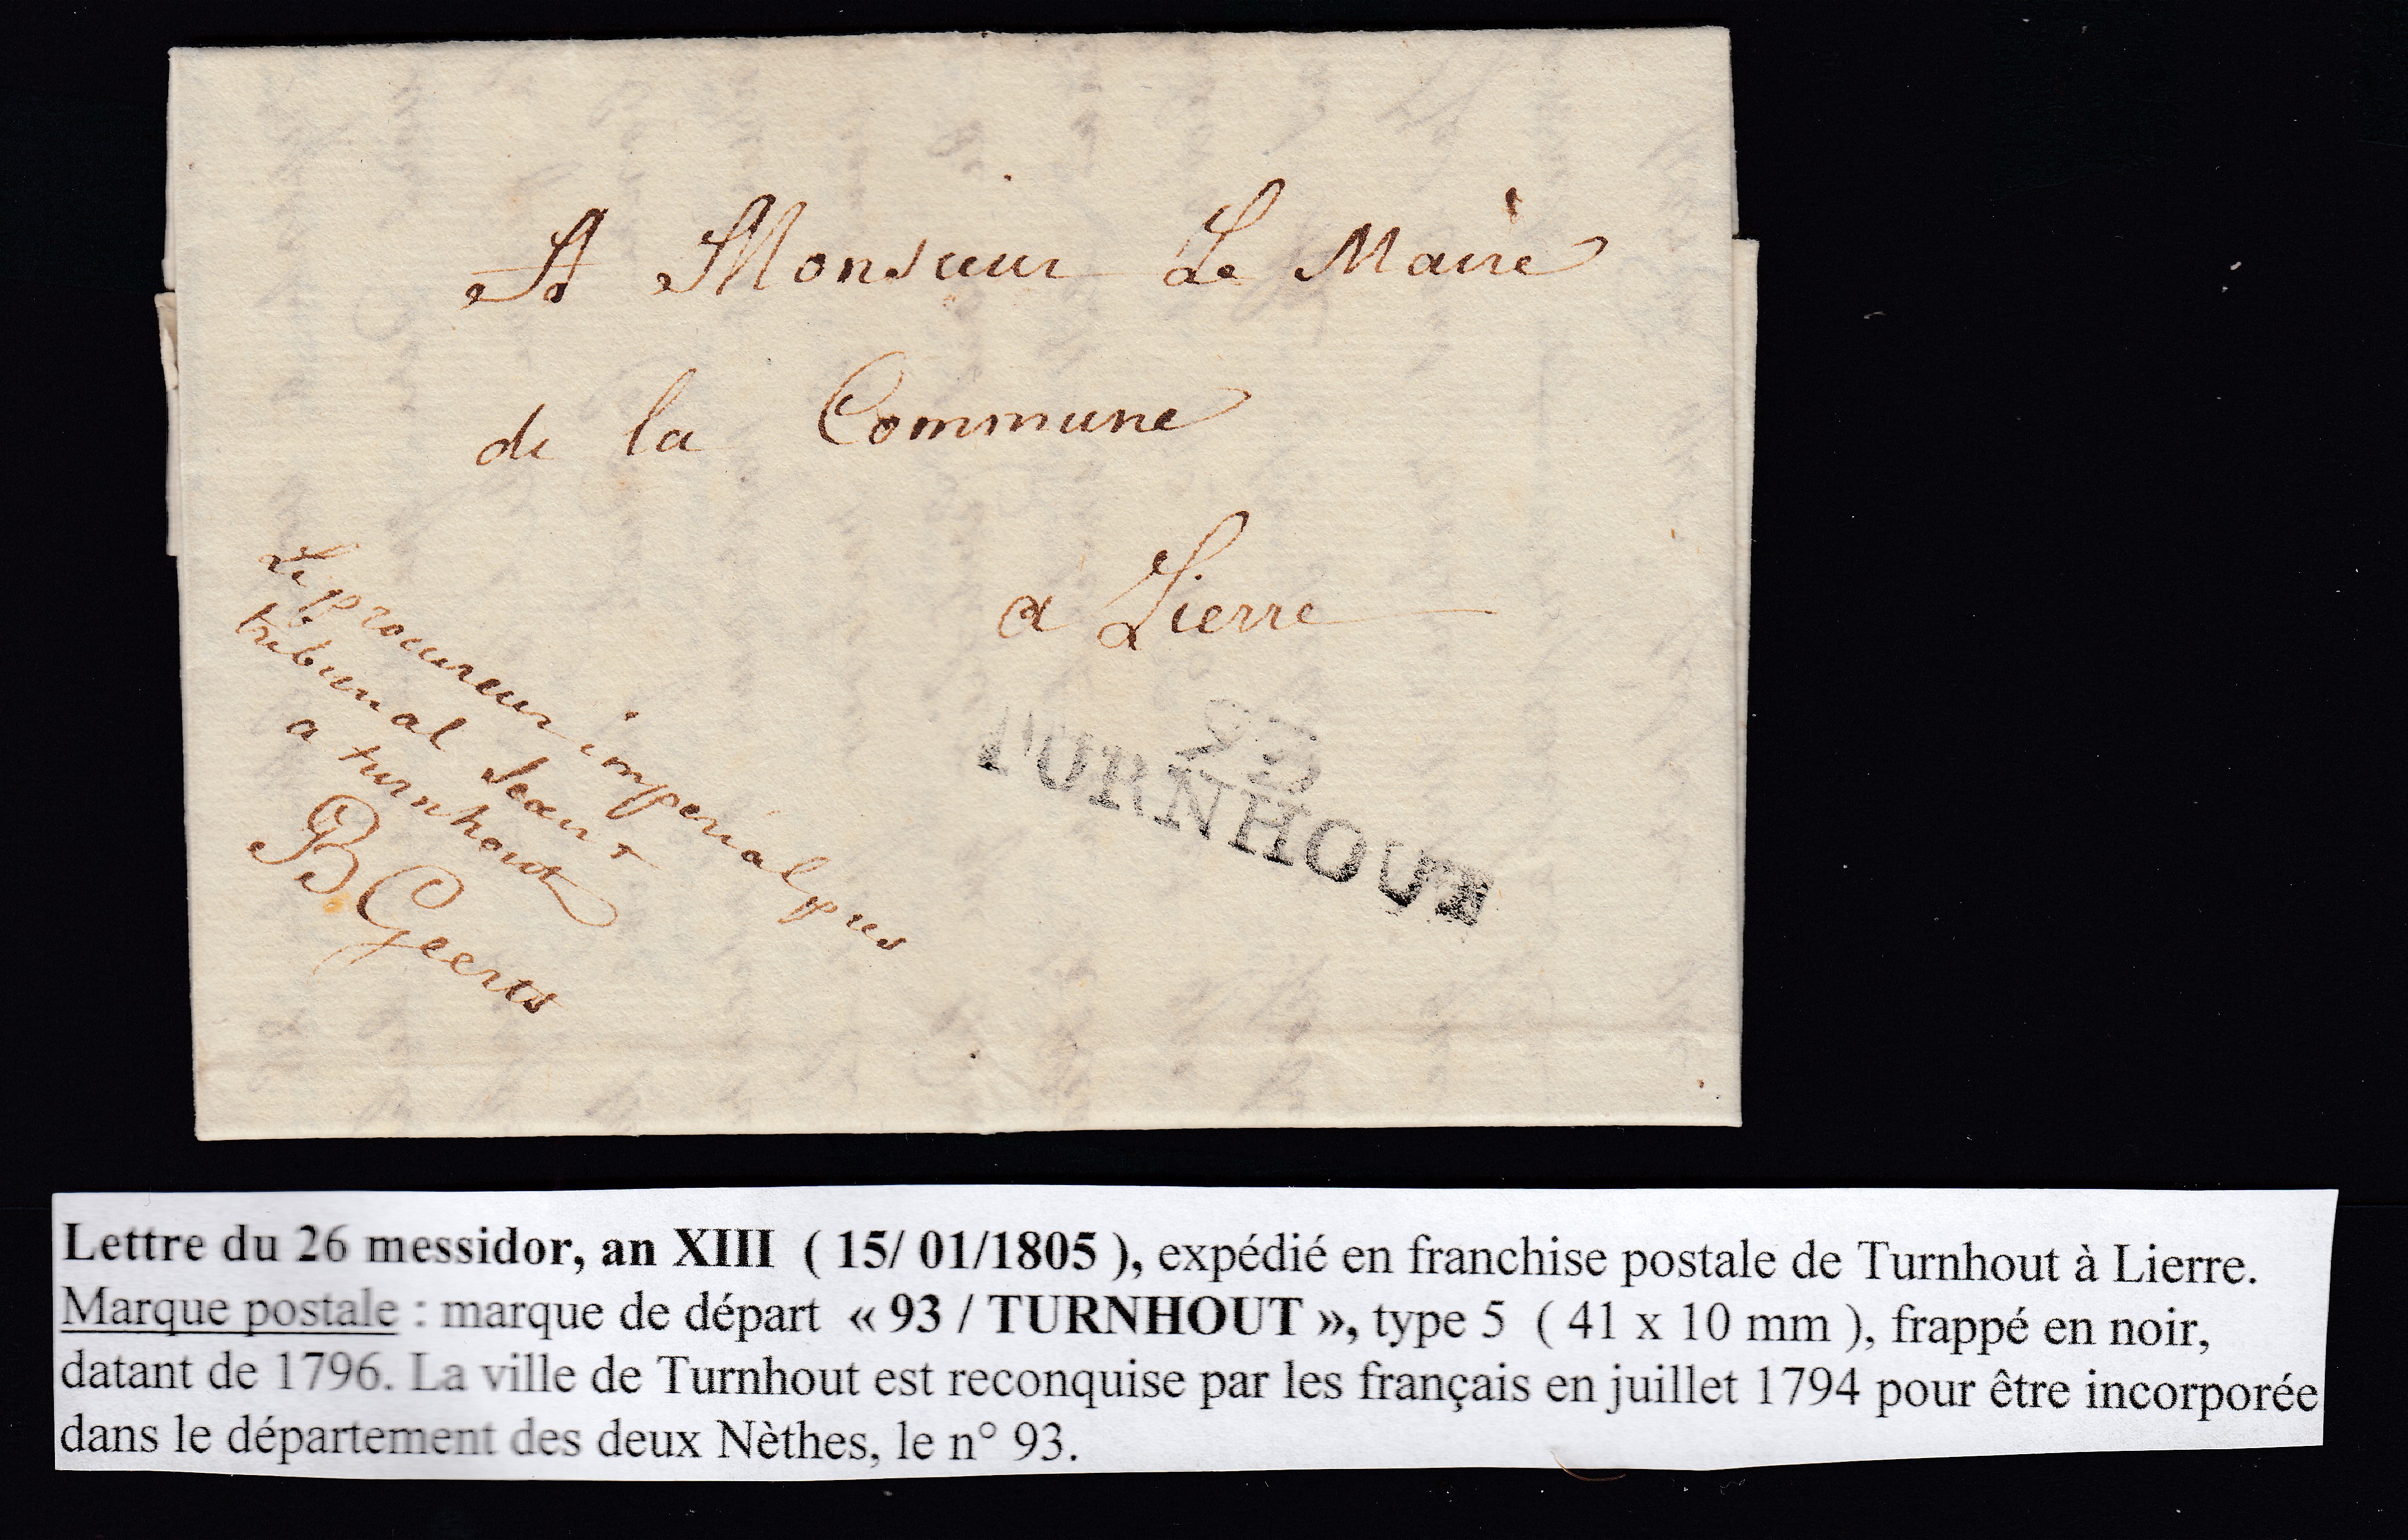 A Monsieur Le Maire
de la Commune
a Lierre
Le procureur imperial pres
tribunal seant
a turnhout
B Geerts
93
TURNHOUT
Lettre du 26 messidor, an XIII ( 15/ 01/1805 ), expédié en franchise postale de Turnhout à Lierre.
Marque postale : marque de départ « 93 / TURNHOUT », type 5 ( 41 x 10 mm ), frappé en noir,
datant de 1796. La ville de Turnhout est reconquise par les français en juillet 1794 pour être incorporée
dans le département des deux Nèthes, le n° 93.